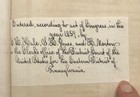 Entered, according to act of Congress in the
year 1859, by
H. C. Hart, and
in the Clerk's Office of the District Court of the
United States for the Eastern District of
Pennsylvania.